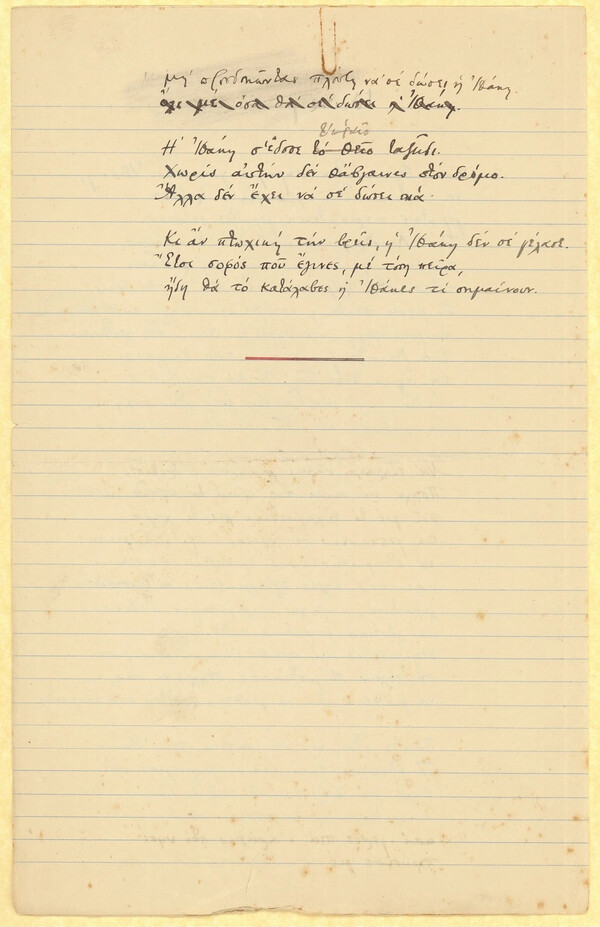 μή προσδοκῶντας πλούτη νά σέ δώσει ἡ Ἰθάκη.
ὄχι μέ ὅσα θά σέ δώσει ἡ Ἰθάκη.
τ' ὡραῖο
Ἡ Ἰθάκη σ' ἔδωσε τό θεῖο ταξεῖδι.
Χωρίς αὐτήν δέν θἄβγαινες στόν δρόμο.
Ἄλλα δέν ἔχει νά σέ δώσει πιά.
Κι ἄν πτωχική τήν βρεῖς, ἡ Ἰθάκη δέν σέ γέλασε.
Ἔτσι σοφός ποῦ ἔγινες, μέ τόση πεῖρα,
ἤδη θά τό κατάλαβες ἡ Ἰθάκες τί σημαίνουν.